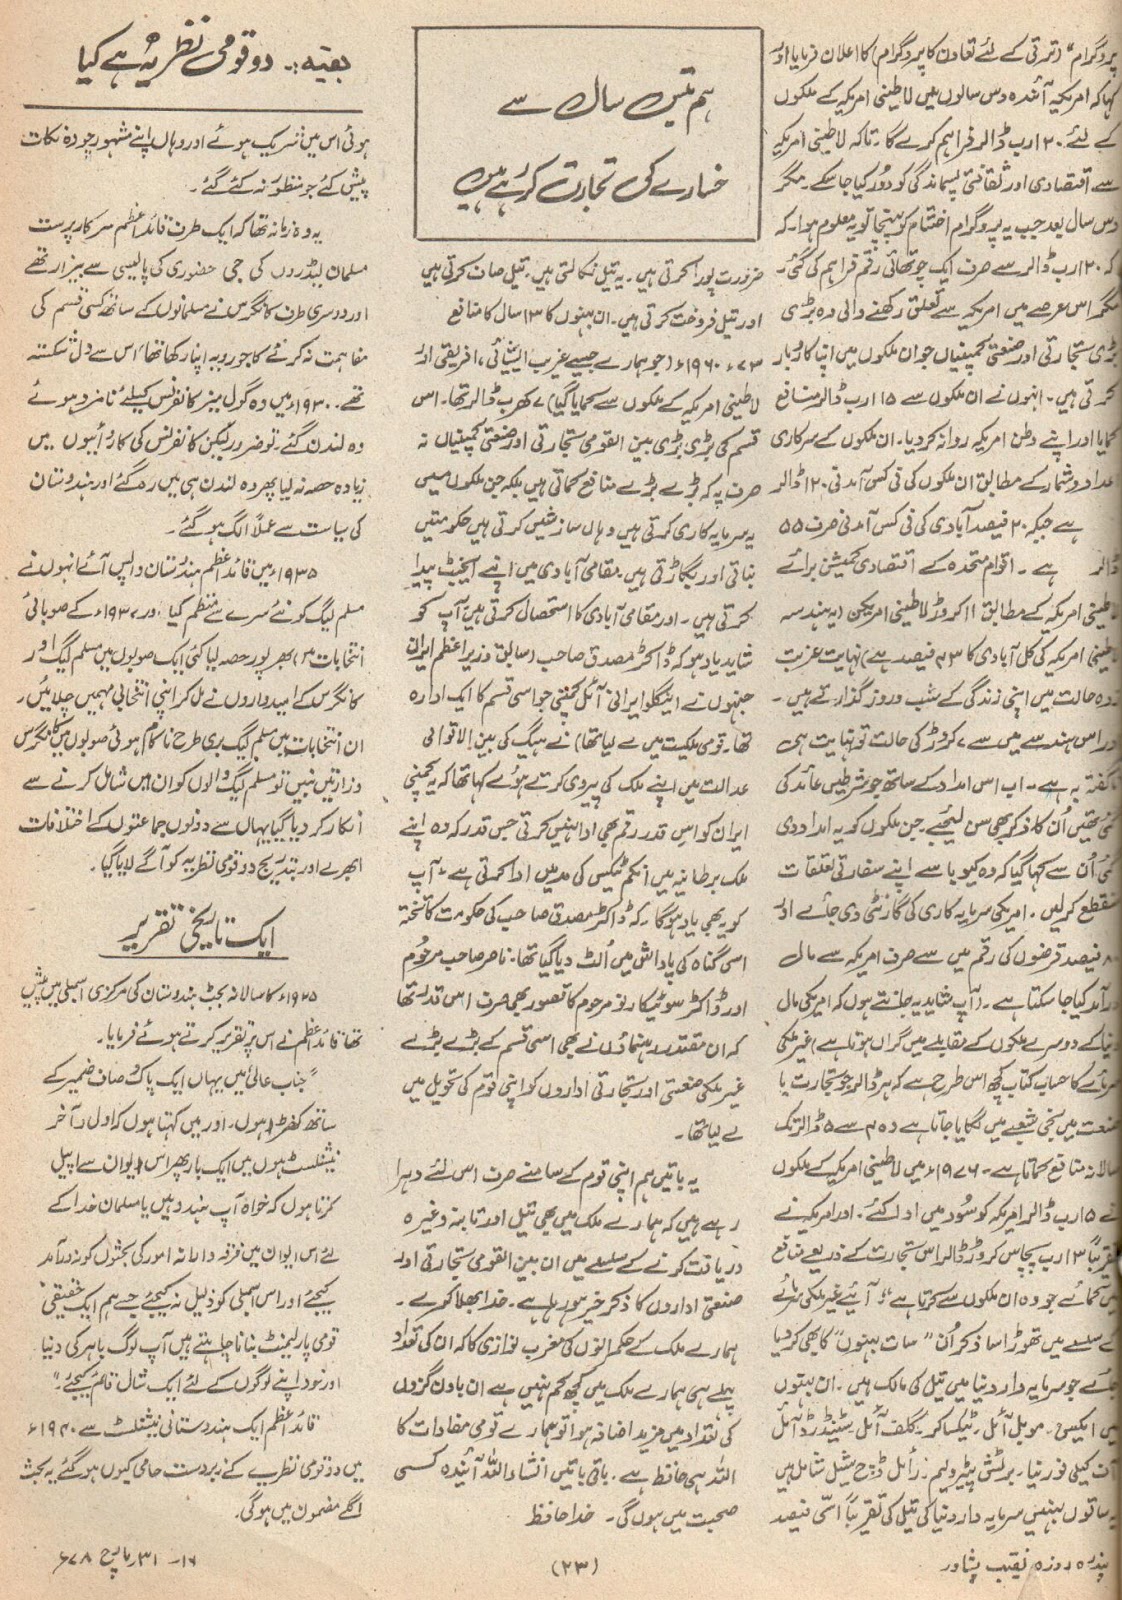 پروگرام" (ترقی کے لئے تعاون کا پروگرام) کا اعلان فرمایا اور
کہا کہ امریکہ آئندہ دس سالوں میں لاطینی امریکہ کے ملکوں
کے لئے ۲۰ ارب ڈالر فراہم کرے گا۔ تاکہ لاطینی امریکہ
سے اقتصادی اور ثقافتی پسماندگی کو دُور کیا جا سکے۔ مگر
دس سال بعد جب یہ پروگرام اختتام کو پہنچا تو یہ معلوم ہوا۔ کہ
کہ ۲۰ ارب ڈالر سے صرف ایک چوتھائی رقم فراہم کی گئی۔
مگر اس عرصے میں امریکہ سے تعلق رکھنے والی وہ بڑی
بڑی تجارتی اور صنعتی کمپنیاں جو ان ملکوں میں اپنا کاروبار
کرتی ہیں۔ انہوں نے ان ملکوں سے ۱۵ ارب ڈالر منافع
کمایا اور اپنے وطن امریکہ روانہ کر دیا۔ ان ملکوں کے سرکاری
اعداد و شمار کے مطابق ان ملکوں کی فی کس آمدنی ۱۲۰ ڈالر
ہے جبکہ ۲۰ فیصد آبادی کی فی کس آمدنی صرف ۵۵
ڈالر ہے۔ اقوام متحدہ کے اقتصادی کمیشن برائے
لاطینی امریکہ کے مطابق ۱۱ کروڑ لاطینی امریکن (یہ ہندسہ
لاطینی امریکہ کی کل آبادی کا ۴۳ فیصد ہے) نہایت غربت
زدہ حالت میں اپنی زندگی کے شب و روز گذارتے ہیں۔
اور اس ہندسے میں سے ۷ کروڑ کی حالت تو نہایت ہی
ناگفتہ بہ ہے۔ اب اس امداد کے ساتھ جو شرطیں عائد کی
گئی تھیں اُن کا ذکر بھی سن لیجئے۔ جن ملکوں کو یہ امداد دی
گئی اُن سے کہا گیا کہ وہ کیوبا سے اپنے سفارتی تعلقات
منقطع کر لیں۔ امریکی سرمایہ کاری کی گارنٹی دی جائے اور
۸۰ فیصد قرضوں کی رقم میں سے صرف امریکہ سے مال
درآمد کیا جا سکتا ہے۔ (آپ شاید یہ جانتے ہوں کہ امریکی مال
دنیا کے دوسرے ملکوں کے مقابلے میں گراں ہوتا ہے) غیر ملکی
سرمائے کا حساب کتاب کچھ اس طرح ہے کہ ہر ڈالر جو تجارت یا
صنعت میں نجی شعبے میں لگایا جاتا ہے وہ ۴ سے ۵ ڈالر تک
سالانہ منافع کماتا ہے۔ ۱۹۷۶ء میں لاطینی امریکہ کے ملکوں
نے ۵ ارب ڈالر امریکہ کو سُود میں ادا کئے۔ اور امریکہ نے
تقریباً ۳ ارب پچاس کروڑ ڈالر اس تجارت کے ذریعے منافع
میں کمائے جو وہ ان ملکوں سے کرتا ہے"، آئیے غیر ملکی سرمائے
کے سلسلے میں تھوڑا سا ذکر اُن "سات بہنوں" کا بھی کر دیا
جائے جو سرمایہ دار دنیا میں تیل کی مالک ہیں۔ ان بہنوں
میں ایکسن۔ موبل آئل۔ ٹیکساکو۔ گلف آئل۔ سٹینڈرڈ آئل
آف کیلی فورنیا۔ برٹش پیٹرولیم۔ رائل ڈچ شیل شامل ہیں
یہ ساتوں بہنیں سرمایہ دار دنیا کی تیل کی تقریباً اسّی فیصد
پندرہ روزہ نقیب پشاور
ہم تیس سال سے
خسارے کی تجارت کر رہے ہیں
ضرورت پورا کرتی ہیں۔ یہ تیل نکالتی ہیں۔ تیل صاف کرتی ہیں
اور تیل فروخت کرتی ہیں۔ ان بہنوں کا ۱۳ سال کا منافع
۷۳ء ۱۹۶۰ء (جو ہمارے جیسے غریب ایشیائی، افریقی اور
لاطینی امریکہ کے ملکوں سے کمایا گیا) ۷ کھرب ڈالر تھا۔ اس
قسم کی بڑی بڑی بین القومی تجارتی اور صنعتی کمپنیاں نہ
صرف یہ کہ بڑے بڑے منافع کماتی ہیں بلکہ جن ملکوں میں
یہ سرمایہ کاری کرتی ہیں وہاں سازشیں کرتی ہیں حکومتیں
بناتی اور بگاڑتی ہیں۔ مقامی آبادی میں اپنے ایجنٹ پیدا
کرتی ہیں۔ اور مقامی آبادی کا استحصال کرتی ہیں آپ کو
شاید یاد ہو کہ ڈاکٹر مصدق صاحب (سابق وزیر اعظم ایران
جنہوں نے اینگلو ایرانی آئل کمپنی جو اسی قسم کا ایک ادارہ
تھا۔ قومی ملکیت میں لے لیا تھا) نے ہیگ کی بین الاقوامی
عدالت میں اپنے ملک کی پیروی کرتے ہوئے کہا تھا کہ یہ کمپنی
ایران کو اس قدر رقم بھی ادا نہیں کرتی جس قدر کہ وہ اپنے
ملک برطانیہ میں انکم ٹیکس کی مد میں ادا کرتی ہے۔ آپ
کو یہ بھی یاد ہوگا۔ کہ ڈاکٹر مصدق صاحب کی حکومت کا تختہ
اسی گناہ کی پاداش میں اُلٹ دیا گیا تھا۔ ناصر صاحب مرحوم
اور ڈاکٹر سوئیکارنو مرحوم کا قصور بھی صرف اس قدر تھا
کہ ان مقتدر رہنماؤں نے بھی اسی قسم کے بڑے بڑے
غیر ملکی صنعتی اور تجارتی اداروں کو اپنی قوم کی تحویل میں
لے لیا تھا۔
یہ باتیں ہم اپنی قوم کے سامنے صرف اس لئے دہرا
رہے ہیں کہ ہمارے ملک میں بھی تیل اور تانبہ وغیرہ
دریافت کرنے کے سلسلے میں ان بین القومی تجارتی اور
صنعتی اداروں کا ذکر خیر ہو رہا ہے۔ خدا بھلا کرے۔
ہمارے ملک کے حکمرانوں کی مغرب نوازی کا کہ ان کی تعداد
پہلے ہی ہمارے ملک میں کچھ کم نہیں ہے ان باون گزوں
کی تعداد میں مزید اضافہ ہوا تو ہمارے قومی مفادات کا
اللہ ہی حافظ ہے۔ باقی باتیں انشاء اللہ آئندہ کسی
صحبت میں ہوں گی۔ خدا حافظ
(۲۳)
بقیہ:۔ دو قومی نظریہ ہے کیا
ہوئی اس میں شریک ہوئے اور وہاں اپنے مشہور چودہ نکات
پیش کئے جو منظور نہ کئے گئے۔
یہ وہ زمانہ تھا کہ ایک طرف قائد اعظم سرکار پرست
مسلمان لیڈروں کی جی حضوری کی پالیسی سے بیزار تھے
اور دوسری طرف کانگرس نے مسلمانوں کے ساتھ کسی قسم کی
مفاہمت نہ کرنے کا جو رویہ اپنا رکھا تھا اس سے دل شکستہ
تھے۔ ۱۹۳۰ء میں وہ گول میز کانفرنس کیلئے نامزد ہوئے
وہ لندن گئے۔ تو ضرور لیکن کانفرنس کی کارروائیوں میں
زیادہ حصہ نہ لیا پھر وہ لندن ہی میں رہ گئے اور ہندوستان
کی سیاست سے عملاً الگ ہو گئے۔
۱۹۳۵ء میں قائد اعظم ہندوستان واپس آئے انہوں نے
مسلم لیگ کو نئے سرے سے منظم کیا اور ۱۹۳۷ء کے صوبائی
انتخابات میں بھرپور حصہ لیا کئی ایک صوبوں میں مسلم لیگ اور
کانگرس کے امیدواروں نے مل کر اپنی انتخابی مہمیں چلائیں۔
ان انتخابات میں مسلم لیگ بری طرح ناکام ہوئی صوبوں میں کانگرس
وزارتیں بنیں تو مسلم لیگ والوں کو ان میں شامل کرنے سے
انکار کر دیا گیا یہاں سے دونوں جماعتوں کے اختلافات
ابھرے اور بتدریج دو قومی نظریہ کو آگے لایا گیا۔
ایک تاریخی تقریر
۱۹۲۵ء کا سالانہ بجٹ ہندوستان کی مرکزی اسمبلی میں پیش
تھا قائد اعظم نے اس پر تقریر کرتے ہوئے فرمایا۔
"جناب عالی میں یہاں ایک پاک و صاف ضمیر کے
ساتھ کھڑا ہوں۔ اور میں کہتا ہوں کہ اول و آخر
نیشنلسٹ ہوں میں ایک بار پھر اس ایوان سے اپیل
کرتا ہوں کہ خواہ آپ ہندو ہیں یا مسلمان خدا کے
لئے اس ایوان میں فرقہ دارانہ امور کی بحثوں کو نہ درآمد
کیجئے اور اس اسمبلی کو ذلیل نہ کیجئے جسے ہم ایک حقیقی
قومی پارلیمنٹ بنانا چاہتے ہیں آپ لوگ باہر کی دنیا
اور خود اپنے لوگوں کے لئے ایک مثال قائم کیجئے۔"
قائد اعظم ایک ہندوستانی نیشنلسٹ سے ۱۹۴۰ء
میں دو قومی نظریے کے زبردست حامی کیوں ہو گئے یہ بحث
اگلے مضمون میں ہوگی۔
۱۶۔ ۳۱ مارچ ۷۸ء